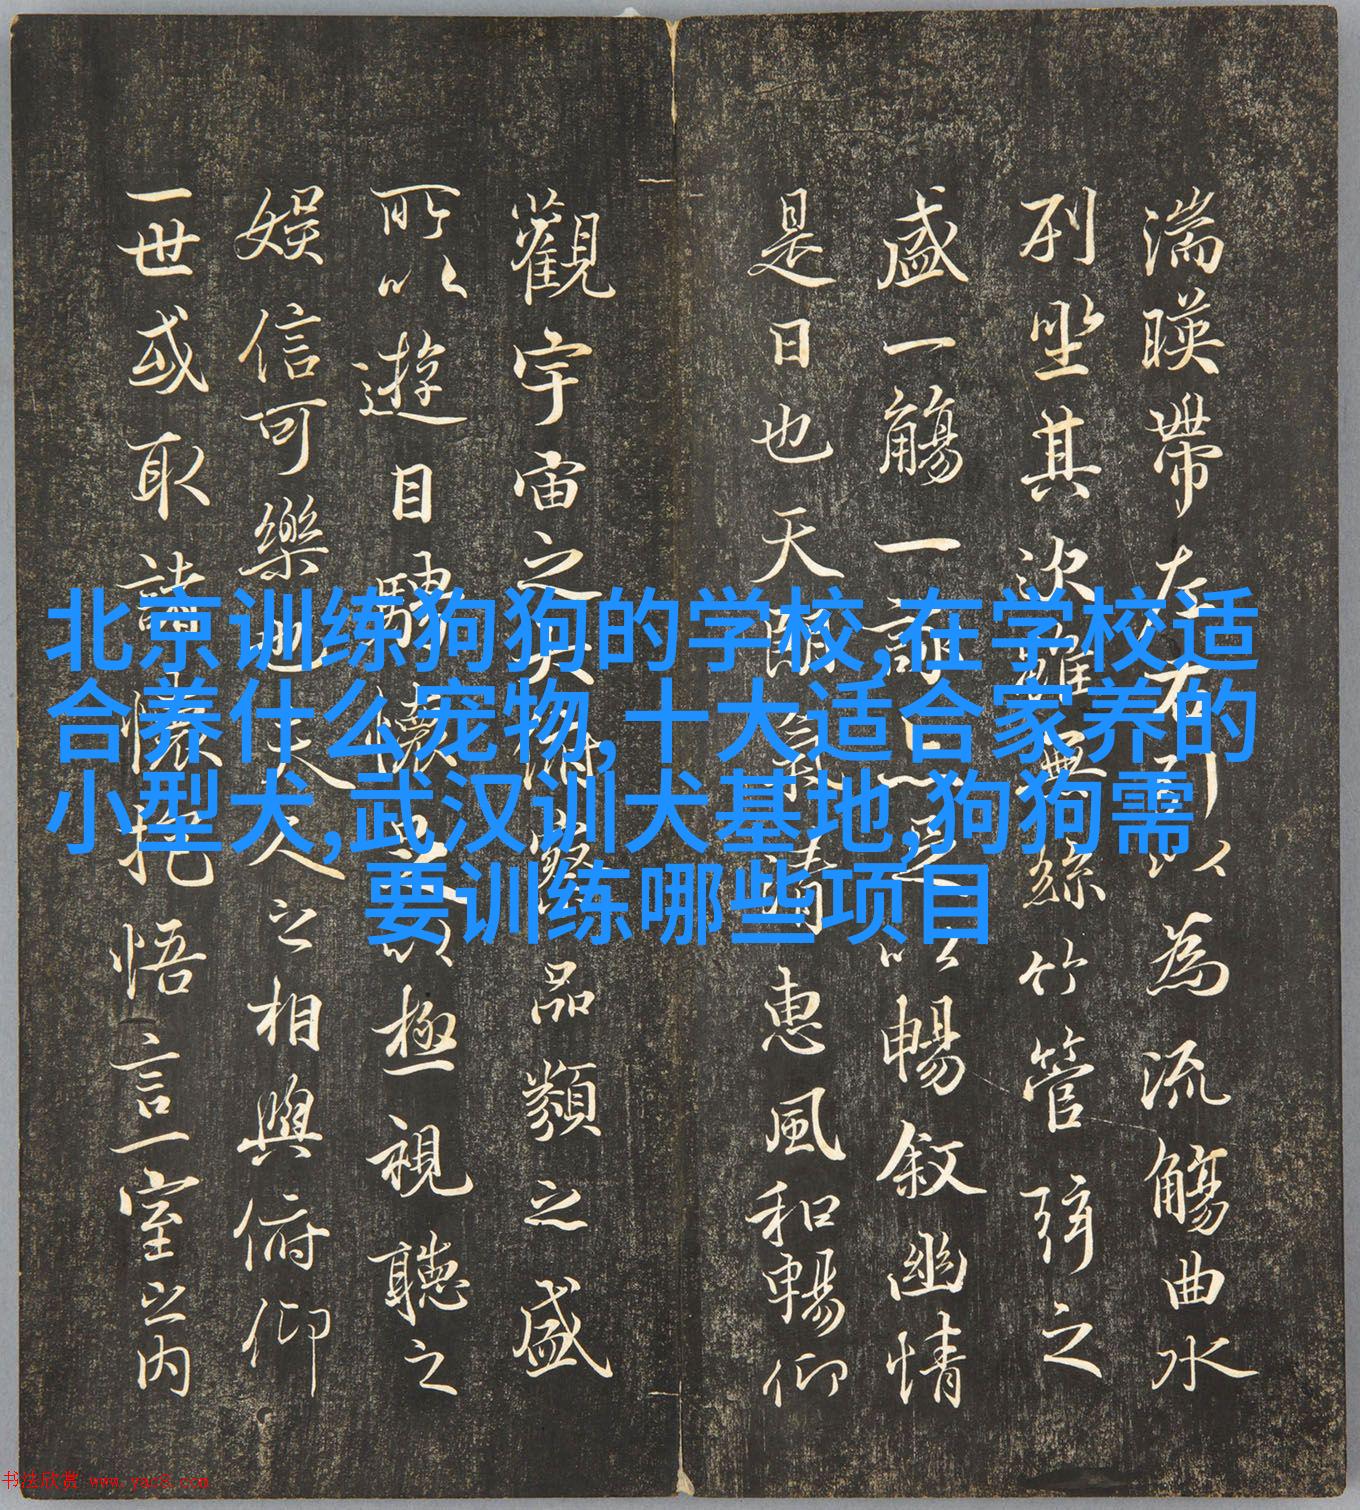 湍暎帶左右引以為流觴曲水
列坐其次雖無絲竹管弦之
盛一觴一詠亦足以暢叙幽情
是日也天朗氣清惠風和暢仰
觀宇宙之大俯察品類之盛
所以遊目騁懷足以極視聽之
娛信可樂也夫人之相與俯仰
一世或取諸懷抱悟言一室之内
北京训练狗狗的学校,在学校适
合养什么宠物,十大适合家养的
小型犬,武汉训犬基地,狗狗需
要训练哪些项目
书法欣赏 www.yac8.com